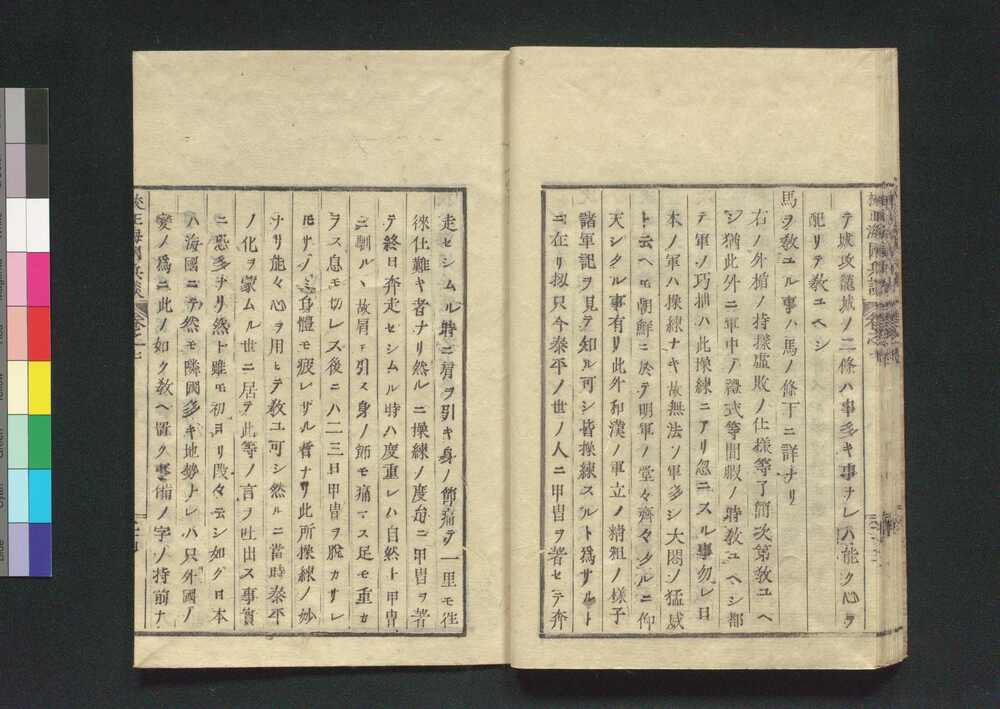 テ城攻籠城ノ二條ハ事多キ事ナレハ能ク心ヲ
配リテ教ユヘシ
馬ヲ教ユル事ハ馬ノ條下ニ詳ナリ
右ノ外楯ノ持樣虚敗ノ仕樣等了簡次第教ユヘ
シ猶此外ニ軍中ノ禮式等閒暇ノ時教ユヘシ都
テ軍ノ巧拙ハ此操練ニアリ忽ニスル事勿レ日
本ノ軍ハ操練ナキ故無法ノ軍多シ大閤ノ猛威
ト云ヘモ朝鮮ニ於テ明軍ノ堂々齊々タルニ仰
天シタル事有リ此外和漢ノ軍立ノ精粗ノ樣子
諸軍記ヲ見テ知ル可シ皆操練スルト爲サルト
ニ在リ扨只今泰平ノ世ノ人ニ甲冑ヲ著セテ奔
走セシムル時ニ肩ヲ引キ身ノ節痛テ一里モ往
徠仕難キ者ナリ然ルニ操練ノ度毎ニ甲冑ヲ著
テ終日奔走セシムル時ハ度重レハ自然ト甲冑
ニ馴ル丶故肩モ引ス身ノ節モ痛マス足モ重カ
ラス息モ切レス後ニハ二三日甲冑ヲ脫カサレ
モサノミ身體モ疲レザル者ナリ此所操練ノ妙
ナリ能々心ヲ用ヒテ教ユ可シ然ルニ當時泰平
ノ化ヲ蒙ムル世ニ居テ此等ノ言ヲ吐出ス事實
ニ恐多ナリ然ト雖モ初ヨリ段々云シ如ク日本
ハ海國ニテ然モ隣國多キ地勢ナレハ只外國ノ
變ノ爲ニ此ノ如ク教ヘ置ク事備ノ字ノ持前ナ